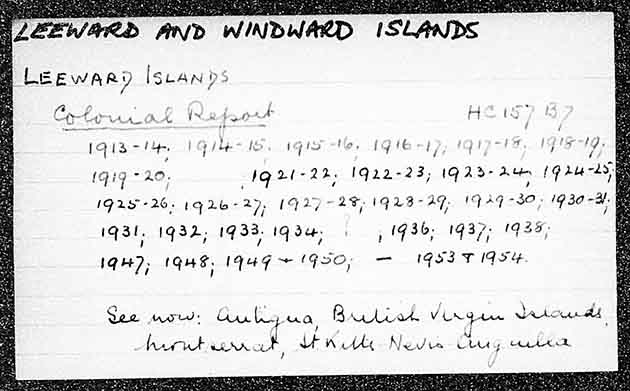 LEEWARD AND WINDWARD ISLANDS
LEEWARD ISLANDS
Colonial Report HC 157 B7
1913-14; 1914-15; 1915-16; 1916-17; 1917-18; 1918-19;
1919-20; , 1921-22; 1922-23; 1923-24; 1924-25;
1925-26; 1926-27; 1927-28; 1928-29; 1929-30; 1930-31;
1931; 1932; 1933; 1934; ? , 1936; 1937; 1938;
1947; 1948; 1949 + 1950; — 1953 + 1954.
See now: Antigua, British Virgin Islands,
Montserrat, St Kitts-Nevis-Anguilla